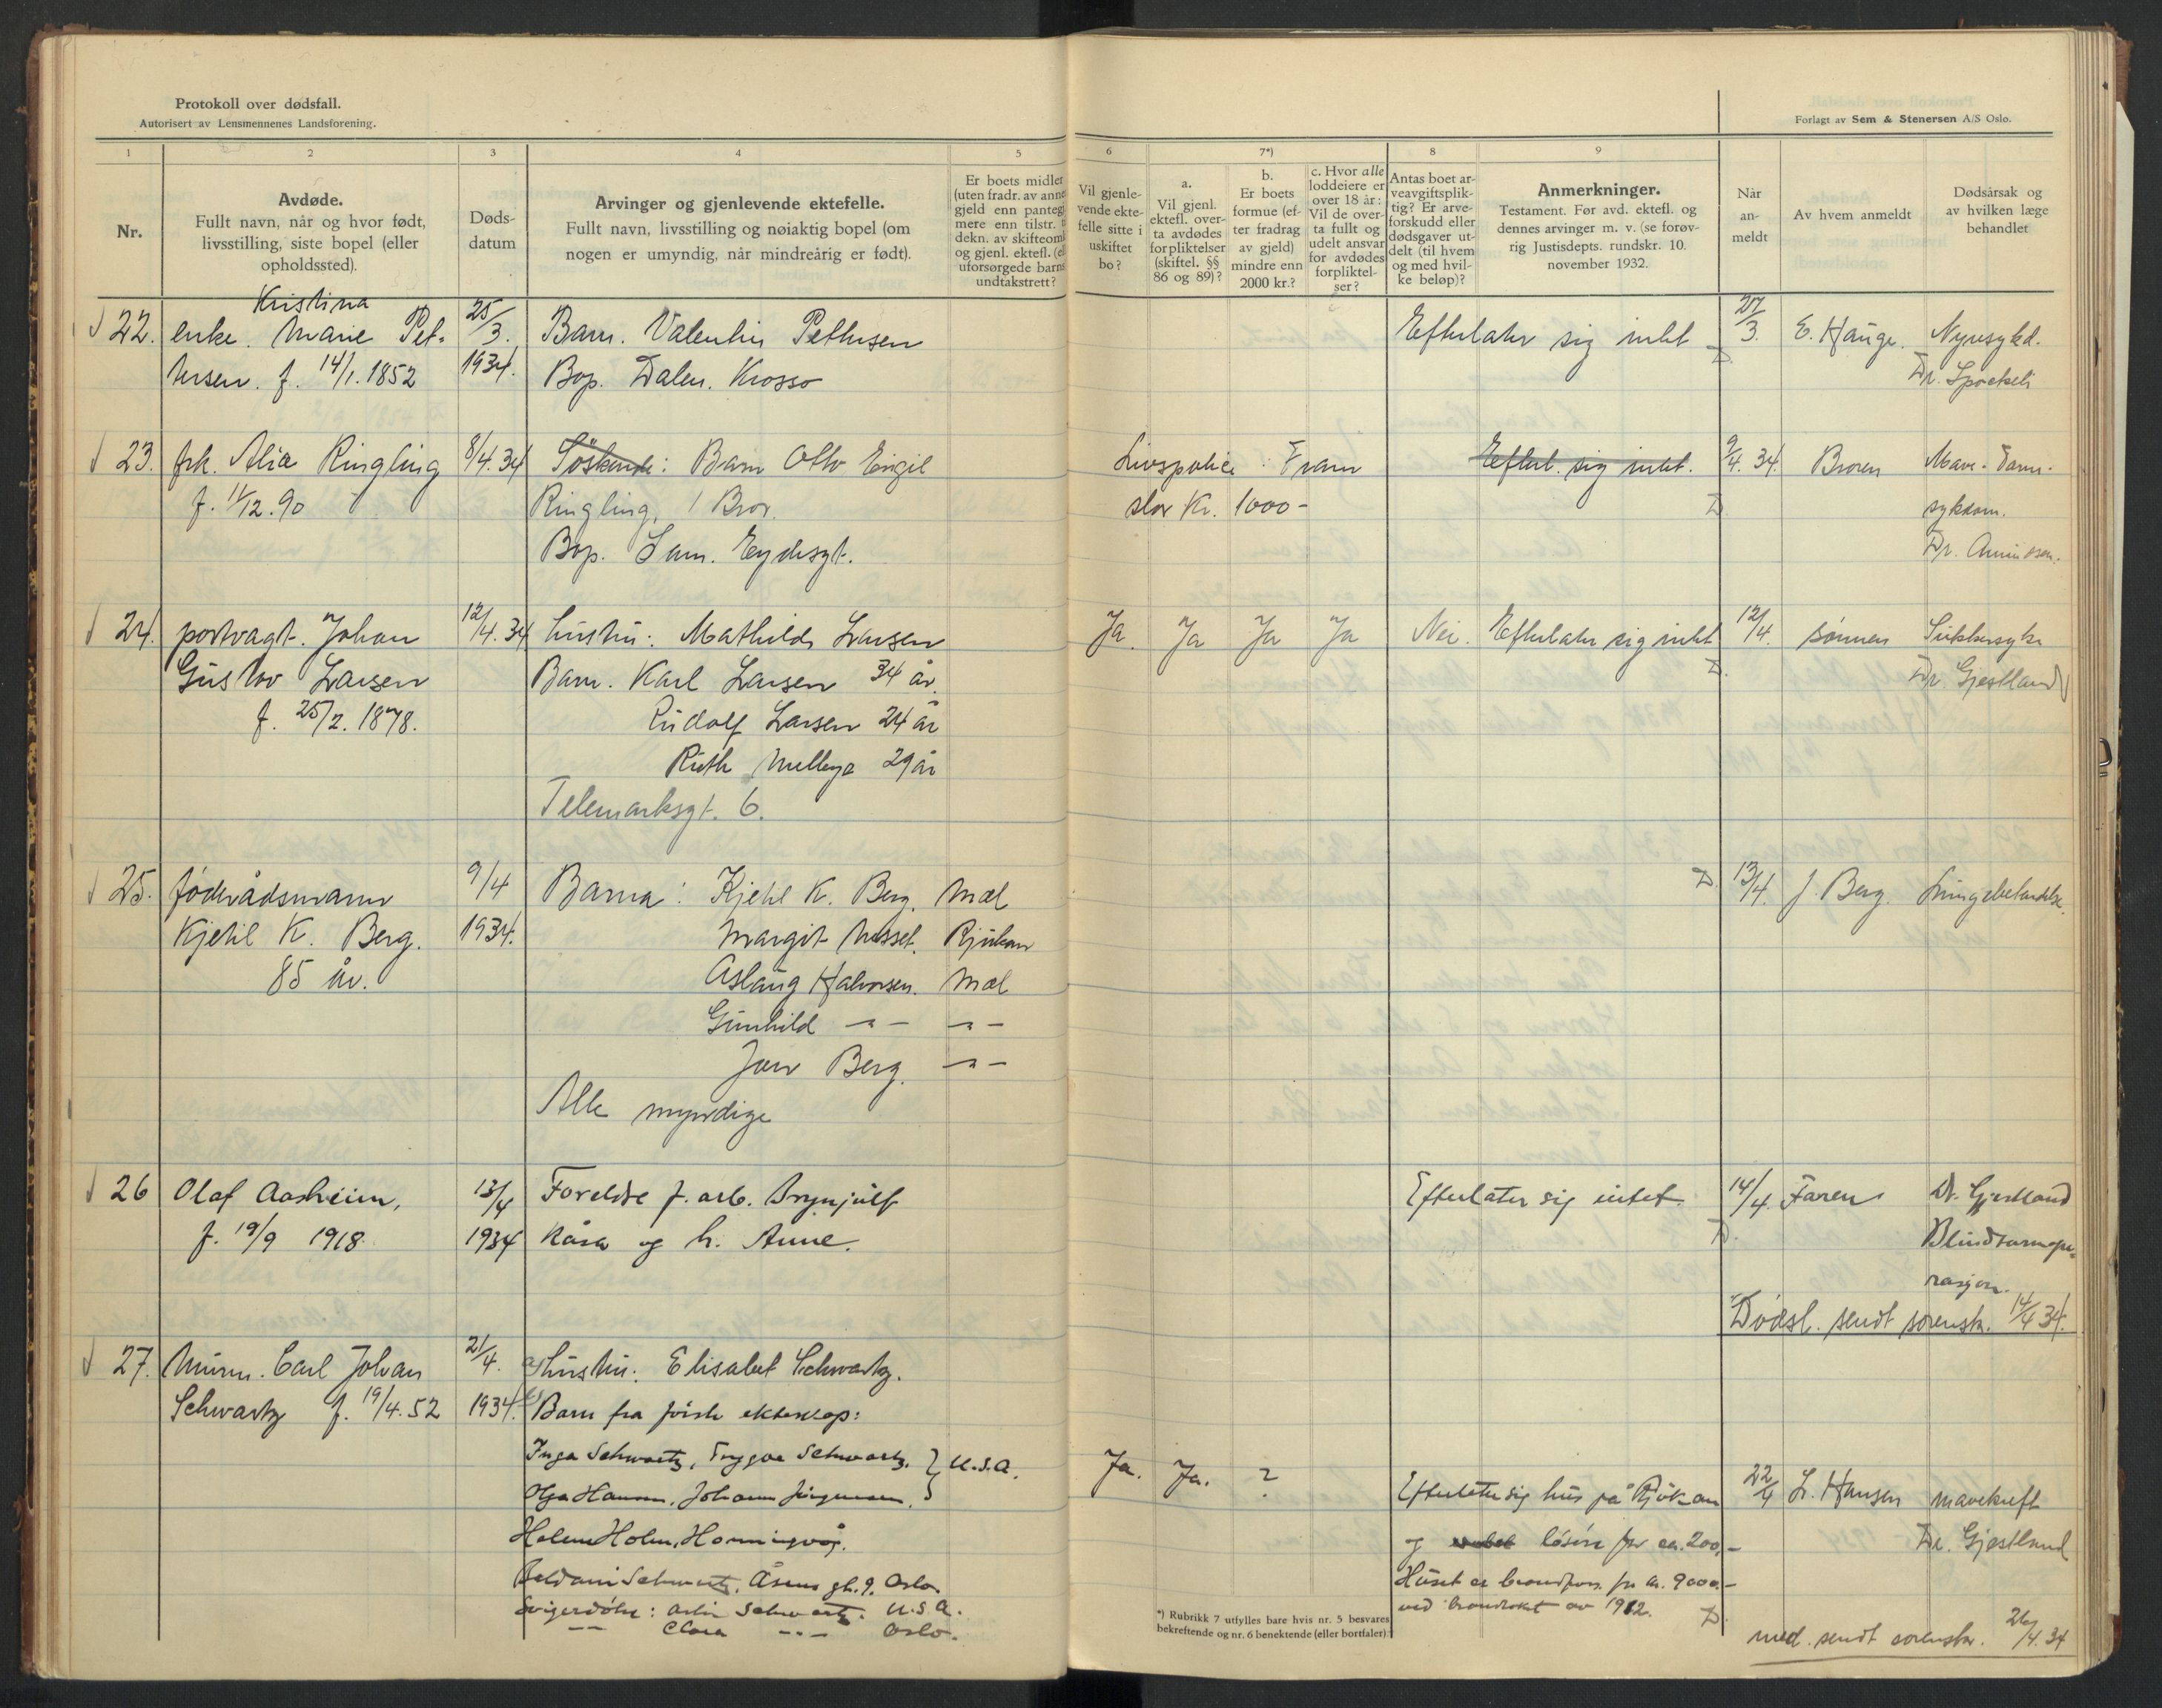 Protokoll over dødsfall.
Autorisert av Lensmennenes Landsforening.
Forlagt av Sem & Stenersen A/S Oslo.
1 2 3 4 5 6 7*) 8 9
Nr.
Avdøde.
Fullt navn, når og hvor født,
livsstilling, siste bopel (eller
opholdssted).
Døds-
datum
Arvinger og gjenlevende ektefelle.
Fullt navn, livsstilling og nøiaktig bopel (om
nogen er umyndig, når mindreårig er født).
Er boets midler
(uten fradr. av annen
gjeld enn pantegj
mere enn tilstr.
dekn. av skifteomk
og gjenl. ektefl. (el
uforsørgede barns
undtakstrett?
Vil gjenle-
vende ekte-
felle sitte i
uskiftet
bo?
a.
Vil gjenl.
ektefl. over-
ta avdødes
forpliktelser
(skiftel. §§
86 og 89)?
b.
Er boets
formue (ef-
ter fradrag
av gjeld)
mindre enn
2000 kr.?
c. Hvor alle
loddeiere er
over 18 år:
Vil de over-
ta fullt og
udelt ansvar
for avdødes
forpliktel-
ser?
Antas boet ar-
veavgiftsplik-
tig? Er arve-
forskudd eller
dødsgaver ut-
delt (til hvem
og med hvil-
ke beløp)?
Anmerkninger.
Testament. Før avd. ektefl. og
dennes arvinger m. v. (se forøv-
rig Justisdepts. rundskr. 10.
november 1932.
Når
an-
meldt
Av hvem anmeldt
Dødsårsak og
av hvilken læge
behandlet
Kristina
22. enke. Marie Pet- 25/3. Barn. Valentin Pettersen Efterlater sig intet 27/3. E. Hauge. Nyresykd.
tersen. f. 14/1. 1852 1934. Bop. Dalen. Krosso D. Dr.
23. frk. Alia Ringling 8/4.34 Söskende: Barn Otto Engil Livspolice: Fram Efterl. sig intet. 9/4. 34. Broren Mave-Tarm-
f. 11/12.90 Ringling, 1 Bror. stor Kr. 1000- D sykdom.
Bop. Sam. Eydesgt. Dr. Amundsen.
24. portvagt. Johan 12/4.34 hustru: Mathilde Larsen Ja. Ja Ja Ja Nei. Efterlater sig intet 12/4. sønnen Sukkersyke
Gustav Larsen Barn. Karl Larsen 34 år. D. Dr. Gjestland
f. 25/2. 1878. Rudolf Larsen 24 år
Ruth Mellbye 29 år
Telemarksgt. 6.
25. föderådsmann 9/4 Barna: Kjetil K. Berg. Mæl D. 13/4. J. Berg. Lungebetændelse.
Kjetil K. Berg. 1934. Margit Masset. Rjukan
85 år. Aslaug Halvorsen. Mæl
Gunhild -"- -"-
Jon Berg. -"-
Alle myndige
26 Olaf Aasheim, 13/4 Foreldre f. arb. Brynjulf Efterlater sig intet. 14/4. Faren Dr. Gjestland
f. 19/9 1918. 1934 Kåsa og h. Anne. D. Blindtarmope-
rasjon.
Dødsf. sendt sorensk. 14/4 34.
27. Murm. Carl Johan 21/4. a) hustru: Elisabet Schwartz.
Schwartz f. 19/4.52 1934. b) Barn fra første ekteskap:
Inga Schwartz, Trygve Schwartz. } U.S.A. Ja. Ja. ?
Olga Hansen, Johanne Jörgensen. Efterlater sig hus på Rjukan 22/4 L. Hansen mavekreft
Helene Holm, Honningvåg. og løsøre for ca. 200,- Dr. Gjestland
Schwartz, Åsens gt. 9. Oslo. Huset er brandfors. for kr. 9000.-
Svigerdøtre: Schwartz. U.S.A. ved brandtakst av 1912. D.
-"- Clara -"- Oslo.
*) Rubrikk 7 utfylles bare hvis nr. 5 besvares
bekreftende og nr. 6 benektende (eller bortfaler).
med. sendt sorenskr. 26/4.34